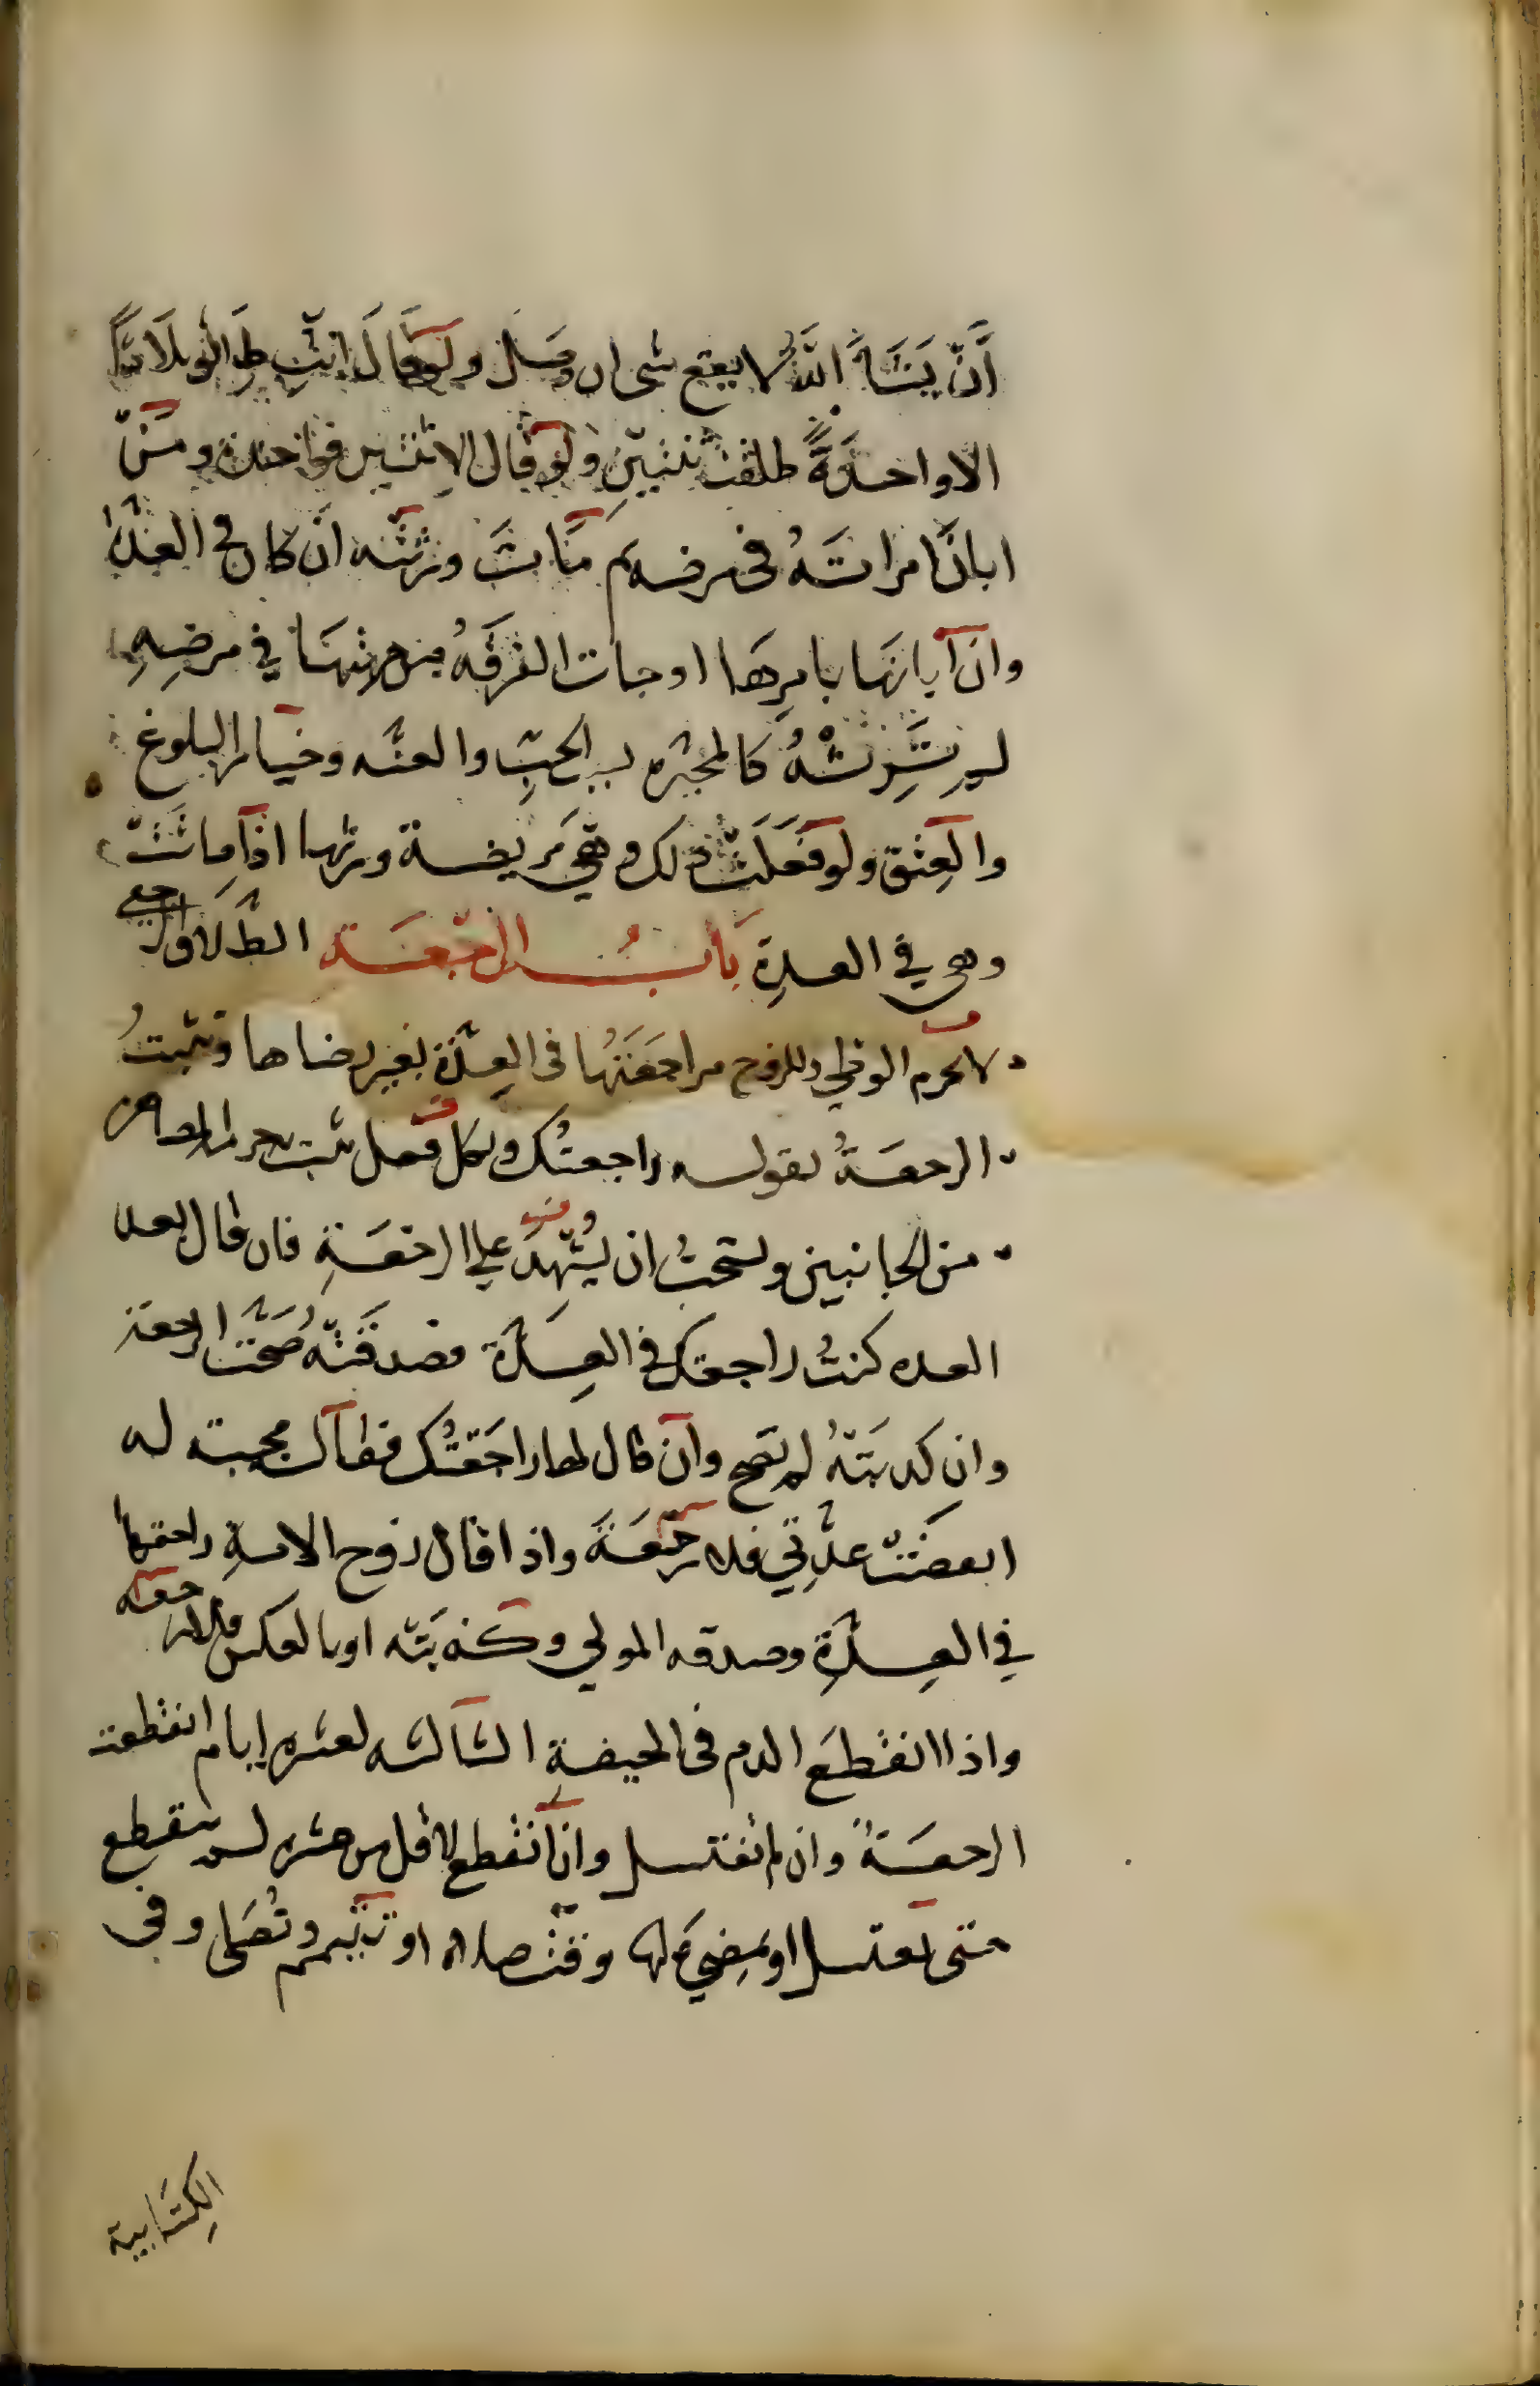 ان شاء الله لا يقع شى ان وصل ولو قال انت طالق ثلاثا
الا واحدة طلقت ثنتين ولو قال الا ثنتين فواحدة ومن
ابان امراته فى مرضه ثم مات ورثته ان كان في العدة
وان ابانها بامرها او جات الفرقه من جهتها في مرضه
لم ترثه كالمخيره بسبب الجب والعنه وخيار البلوغ
والعتق ولو فعلت ذلك وهي مريضة ورثها اذا ماتت
وهى في العدة باب الرجعة الطلاق الرجعي
لا يحرم الوطي وللزوج مراجعتها فى العدة بغير رضاها وتثبت
الرجعة بقوله راجعتك وبكل فعل تثبت به حرمة المصاهرة
من الجانبين ويستحب ان يشهد علي الرجعة فان قال بعد
العده كنت راجعتك في العدة فصدقته صحت الرجعة
وان كذبته لم تصح وان قال لها راجعتك فقالت مجيبة له
انقضت عدتي فلا رجعة واذا قال زوج الامة راجعتها
في العدة وصدقه المولي وكذبته او بالعكس فلا رجعة
واذا انقطع الدم فى الحيضة الثالثه لعشره ايام انقطعت
الرجعة وان لم تغتسل وان انقطع لاقل من عشره لم تنقطع
حتى تغتسل او يمضي عليها وقت صلاة او تتيمم وتصلى وفى
الكتابية